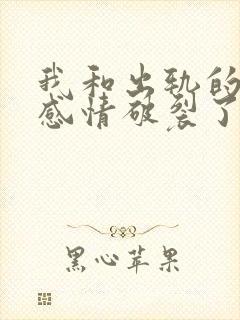 我和出轨的
感情破裂了
黑心苹果